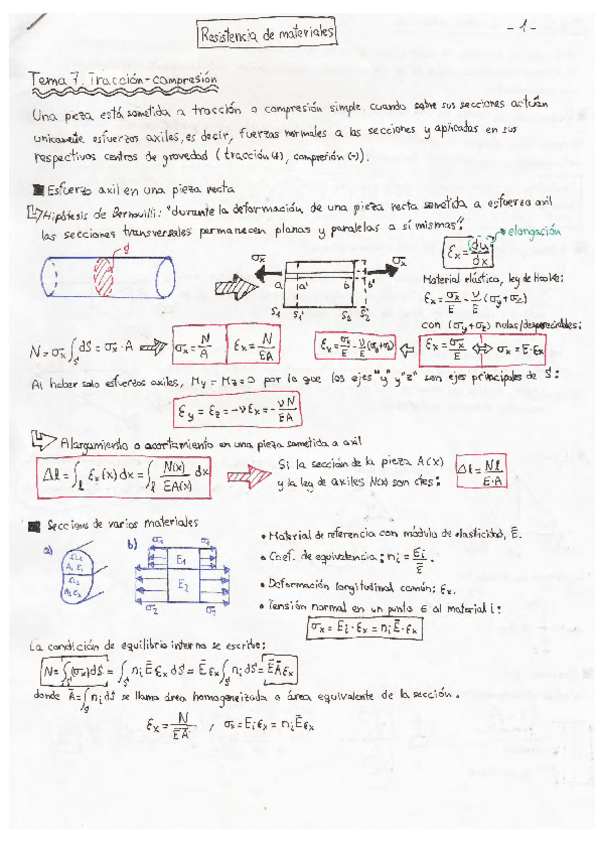 Resistencia de materiales
-1-
Tema 7. Tracción-compresión
Una pieza está sometida a tracción o compresión simple cuando sobre sus secciones actúan
unicamente esfuerzos axiles, es decir, fuerzas normales a las secciones y aplicadas en sus
respectivos centros de gravedad (tracción (+), compresión (-)).
Esfuerzo axil en una pieza recta
Hipótesis de Bernouilli: "durante la deformación de una pieza recta sometida a esfuerzo axil
las secciones transversales permanecen planas y paralelas a sí mismas".
elongación
εx = du/dx
S
σx σx
a a' b b'
S1 S1' S2 S2'
Material elástico, ley de Hooke:
εx = σx/E - ν/E (σy+σz)
con (σy+σz) nulas/despreciables:
N = σx ∫S dS = σx · A ⇒ σx = N/A εx = N/EA
εx = σx/E - ν/E (σy+σz) ⇐ εx = σx/E ⇔ σx = E·εx
Al haber solo esfuerzos axiles, My = Mz = 0 por lo que los ejes "y" y "z" son ejes principales de S:
εy = εz = -νεx = -νN/EA
Alargamiento o acortamiento en una pieza sometida a axil
Δl = ∫l εx(x) dx = ∫l N(x)/EA(x) dx
Si la sección de la pieza A(x)
y la ley de axiles N(x) son ctes:
Δl = Nl/E·A
Secciones de varios materiales
a) b)
A1 E1
A2 E2
σ1 σ1
E1
E2
σ2 σ2
• Material de referencia con módulo de elasticidad, Ē.
• Coef. de equivalencia: ni = Ei/Ē.
• Deformación longitudinal común: εx.
• Tensión normal en un punto ∈ al material i:
σx = Ei·εx = niĒ·εx
La condición de equilibrio interno se escribe:
N = ∫S (σx) dS = ∫S ni Ē εx dS = Ē εx ∫S ni dS = Ē Ā εx
donde Ā = ∫S ni dS se llama área homogeneizada o área equivalente de la sección.
εx = N/ĒĀ , σx = Ei εx = ni Ē εx